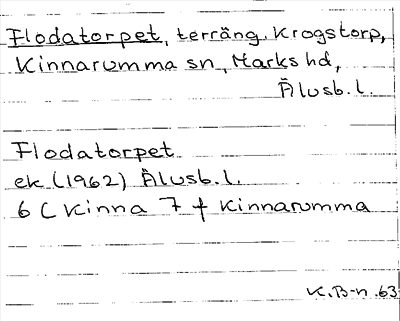 Flodatorpet, terräng, Krogstorp,
Kinnarumma sn, Marks hd,
Älvsb. l.
Flodatorpet
ek (1962) Älvsb. l.
6 C Kinna 7 f Kinnarumma
K. B-n. 63